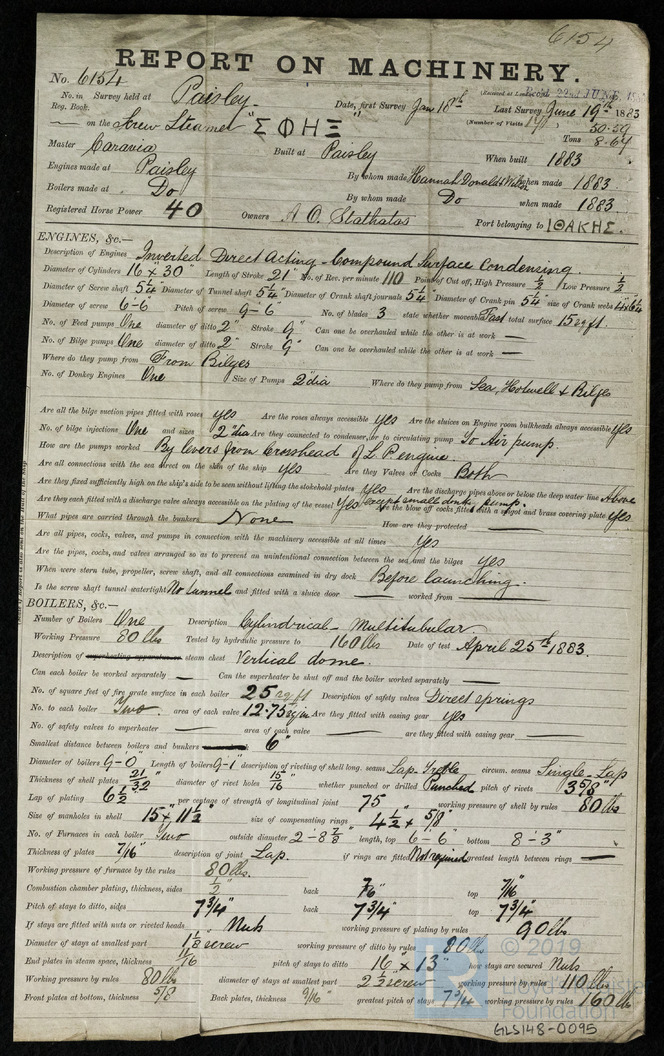 6154
REPORT ON MACHINERY.
No. 6154
No. in Reg. Book. Survey held at Paisley. Date, first Survey Jan 18th Last Survey June 19th 1883
on the Screw Steamer "ΣΦΗΞ" (Number of Visits 50.59
Tons 8.64
Master Caravia Built at Paisley When built 1883
Engines made at Paisley By whom made Hannah Donald & Wilson when made 1883
Boilers made at Do By whom made Do when made 1883
Registered Horse Power 40 Owners A. O. Stathatos Port belonging to ΙΘΑΚΗΣ.
ENGINES, &c.—
Description of Engines Inverted Direct Acting - Compound Surface Condensing.
Diameter of Cylinders 16" x 30" Length of Stroke 21" No. of Rev. per minute 110 Point of Cut off, High Pressure 1/2 Low Pressure 1/2
Diameter of Screw shaft 5 1/4" Diameter of Tunnel shaft 5 1/4" Diameter of Crank shaft journals 5 1/4" Diameter of Crank pin 5 1/4" size of Crank webs
Diameter of screw 6-6" Pitch of screw 9-6" No. of blades 3 state whether moveable Fast total surface 15 sq ft.
No. of Feed pumps One diameter of ditto 2" Stroke 9" Can one be overhauled while the other is at work —
No. of Bilge pumps One diameter of ditto 2" Stroke 9" Can one be overhauled while the other is at work —
Where do they pump from From Bilges
No. of Donkey Engines One Size of Pumps 2" dia Where do they pump from Sea, Hotwell & Bilges
Are all the bilge suction pipes fitted with roses Yes Are the roses always accessible Yes Are the sluices on Engine room bulkheads always accessible Yes
No. of bilge injections One and sizes 2" dia Are they connected to condenser, or to circulating pump To Air pump.
How are the pumps worked By levers from Crosshead of L.P engine.
Are all connections with the sea direct on the skin of the ship Yes Are they Valves or Cocks Both
Are they fixed sufficiently high on the ship's side to be seen without lifting the stokehold plates Yes Are the discharge pipes above or below the deep water line Above
Are they each fitted with a discharge valve always accessible on the plating of the vessel Yes except small donk. pump. Are the blow off cocks fitted with a spigot and brass covering plate Yes
What pipes are carried through the bunkers None How are they protected —
Are all pipes, cocks, valves, and pumps in connection with the machinery accessible at all times Yes
Are the pipes, cocks, and valves arranged so as to prevent an unintentional connection between the sea and the bilges Yes
When were stern tube, propeller, screw shaft, and all connections examined in dry dock Before launching.
Is the screw shaft tunnel watertight No tunnel and fitted with a sluice door — worked from —
BOILERS, &c.—
Number of Boilers One Description Cylindrical - Multitubular
Working Pressure 80 lbs Tested by hydraulic pressure to 160 lbs Date of test April 25th 1883.
Description of superheating apparatus or steam chest Vertical dome.
Can each boiler be worked separately — Can the superheater be shut off and the boiler worked separately —
No. of square feet of fire grate surface in each boiler 25 sq ft Description of safety valves Direct springs
No. to each boiler Two area of each valve 12.75 sq in Are they fitted with easing gear Yes
No. of safety valves to superheater — area of each valve — are they fitted with easing gear —
Smallest distance between boilers and bunkers 6"
Diameter of boilers 9'-0" Length of boilers 9-1" description of riveting of shell long. seams Lap-Treble circum. seams Single-Lap
Thickness of shell plates 21/32 diameter of rivet holes 15/16" whether punched or drilled Punched pitch of rivets 3 5/8"
Lap of plating 6 1/2" per centage of strength of longitudinal joint 75 working pressure of shell by rules 80 lbs
Size of manholes in shell 15" x 11 1/2" size of compensating rings 4 1/2 x 5/8"
No. of Furnaces in each boiler Two outside diameter 2-8 7/8" length, top 6'-6" bottom 8'-3"
Thickness of plates 7/16" description of joint Lap. if rings are fitted Not required greatest length between rings —
Working pressure of furnace by the rules 80 lbs.
Combustion chamber plating, thickness, sides 1/2" back 7/16" top 7/16"
Pitch of stays to ditto, sides 7 3/4" back 7 3/4" top 7 3/4"
If stays are fitted with nuts or riveted heads Nuts working pressure of plating by rules 90 lbs
Diameter of stays at smallest part 1 1/8 screw working pressure of ditto by rules 80 lbs
End plates in steam space, thickness 11/16 pitch of stays to ditto 16" x 13" how stays are secured Nuts
Working pressure by rules 80 lbs diameter of stays at smallest part 2 1/2 screw working pressure by rules 110 lbs
Front plates at bottom, thickness 5/8 Back plates, thickness 9/16" greatest pitch of stays 7 3/4 working pressure by rules 160 lb
© 2019
Lloyd's Register
Foundation
GLS148-0095